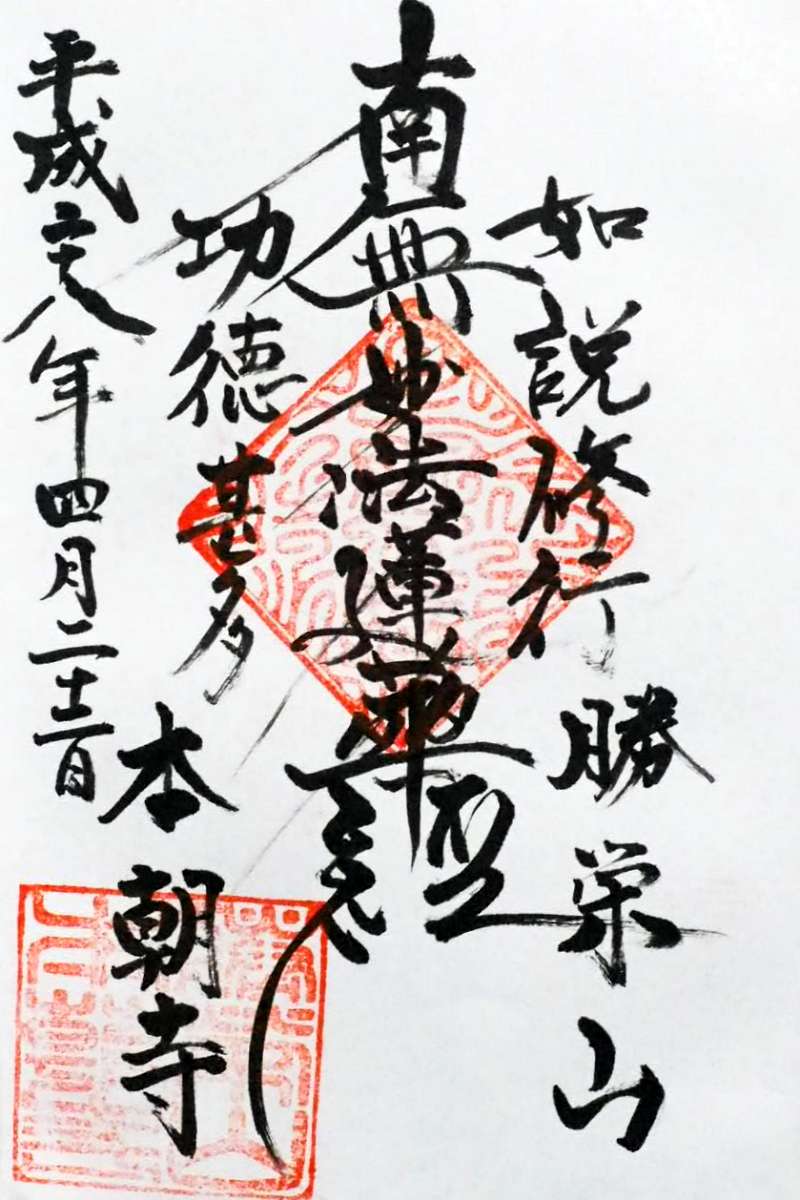 如説修行
勝栄山
南無妙法蓮華経
功徳甚多
本朝寺
平成二十八年四月二十三日